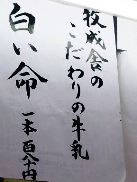 牧成舎の
こだわりの牛乳
白い命
一本百八十円